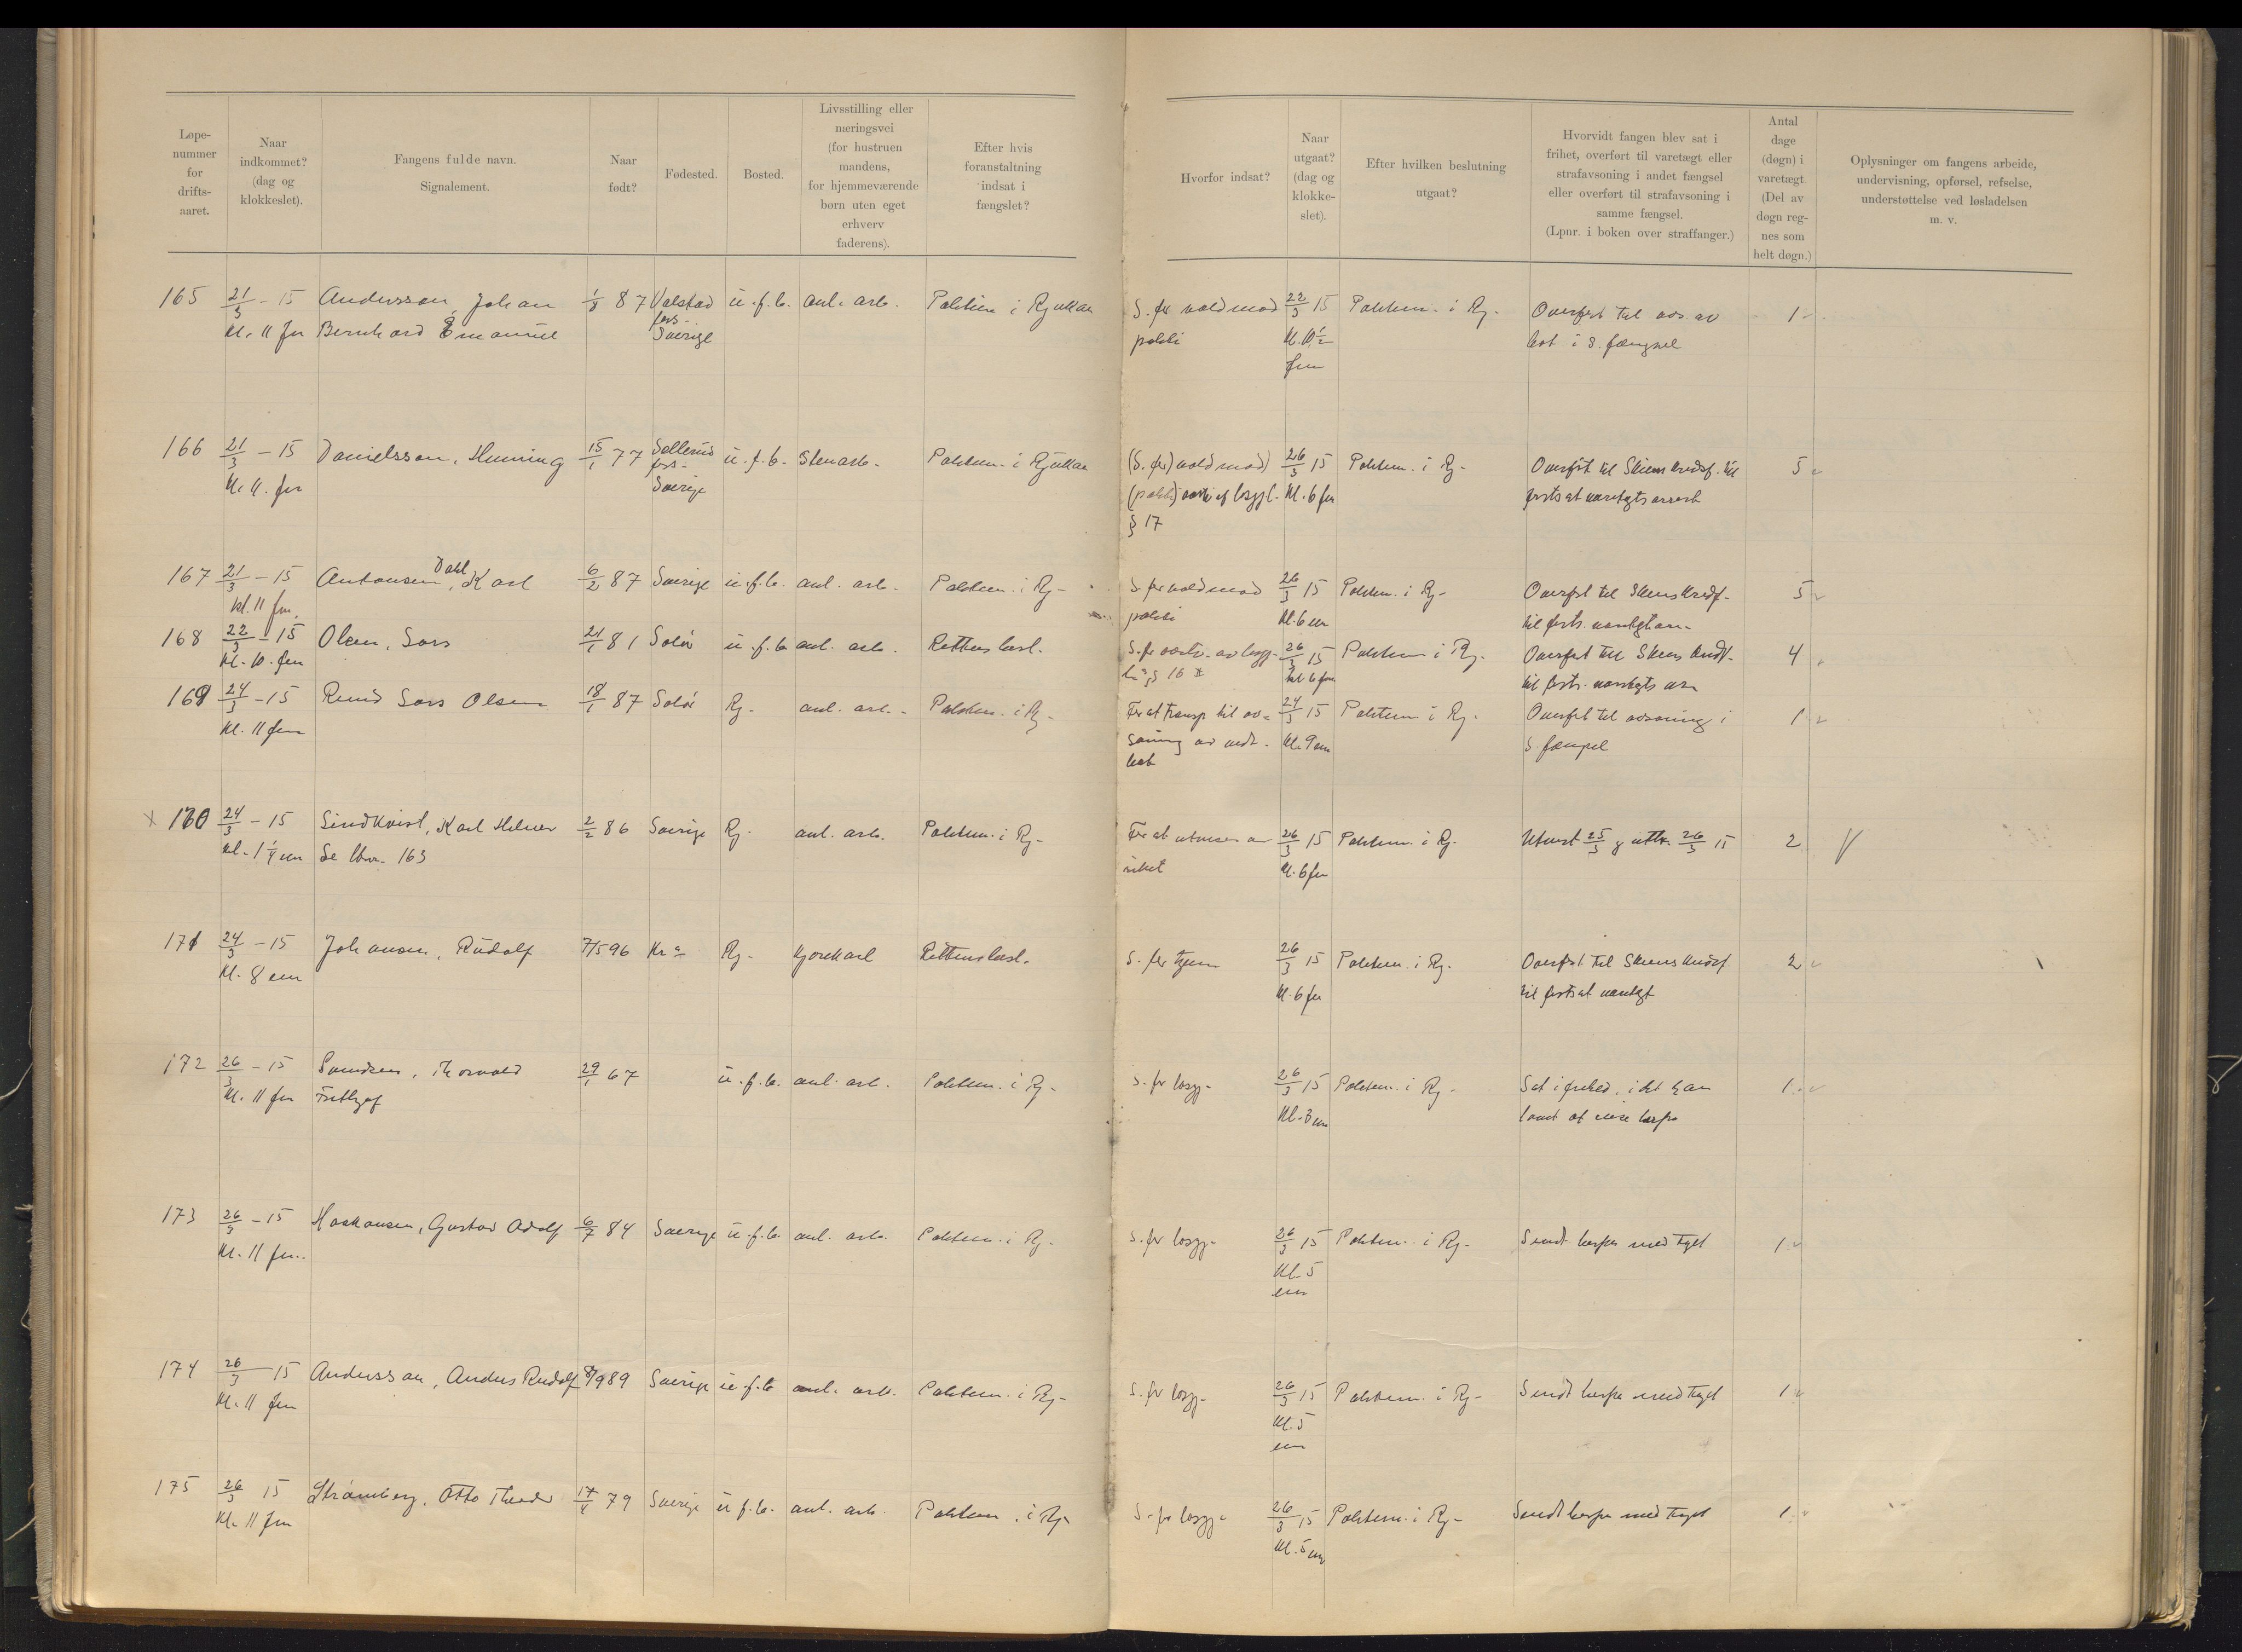 Løpe-
nummer
for
drifts-
aaret.
Naar
indkommet?
(dag og
klokkeslet).
Fangens fulde navn.
Signalement.
Naar
født?
Fødested.
Bosted.
Livsstilling eller
næringsvei
(for hustruen
mandens,
for hjemmeværende
børn uten eget
erhverv
faderens).
Efter hvis
foranstaltning
indsat i
fængslet?
Hvorfor indsat?
Naar
utgaat?
(dag og
klokke-
slet).
Efter hvilken beslutning
utgaat?
Hvorvidt fangen blev sat i
frihet, overført til varetægt eller
strafavsoning i andet fængsel
eller overført til strafavsoning i
samme fængsel.
(Lpnr. i boken over straffanger.)
Antal
dage
(døgn) i
varetægt.
(Del av
døgn reg-
nes som
helt døgn.)
Oplysninger om fangens arbeide,
undervisning, opførsel, refselse,
understøttelse ved løsladelsen
m. v.
165 21/3 - 15 Andersson, Johan 1/8 87 u.f.b. anl. arb. Politim i Rjukan S. for vold mod 22/3 15 Politim. i Rj. Overført til avs. av 1
kl. 11 fm Bernhard Emanuel Sverige politi kl. 10 1/2 bot i s. fængsel
fm
166 21/3 - 15 Danielsson, Henning 15/1 77 u.f.b. Stenarb. Politim. i Rjukan (S. for) vold mod) 26/3 15 Politim. i Rj. Overført til Skiens kredsf. til 5
kl. 11. fm Sverige (politi) kl. 6 fm fortsat varetægtsarrest
§ 17
167 21/3 - 15 Antonsen Dahl, Karl 6/2 87 Sverige u.f.b. anl. arb. Politim. i Rj. S. for vold mod 26/3 15 Politim. i Rj. Overført til Skiens kredsf. 5
kl. 11 fm. politi kl. 6 til forts.
168 22/3 - 15 Olsen, Lars 21/1 81 Solør u.f.b. anl. arb. Rettens besl. 26/3 15 Politim i Rj. Overført til Skiens kredsf. 4
kl. 10. fm § 16 kl 6 fm til forts. varetægts
169 24/3 - 15 Lars Olsen 18/1 87 Solør Rj. anl. arb. Politim. i Rj. For at transp til av- 24/3 15 Politim i Rj. Overført til avsoning i 1
kl. 11 fm soning av kl. 9 em s. fængsel
bot
x 170 24/3 - 15 Lindkvist, Karl Helmer 2/2 86 Sverige Rj. anl. arb. Politim. i Rj. For at utvises av 26/3 15 Politim. i Rj. Utvist 25/3 26/3 15 2
kl. 1 1/4 em Se lbnr. 163 riket kl. 6 fm
171 24/3 - 15 Johansen, Rudolf 7/5 96 Kr.a Rj. Kjørekarl Rettens besl. S. for tyveri 26/3 15 Politim. i Rj. Overført til Skiens kredsf. 2
kl. 8 em kl. 6 fm til fortsat varetægt
172 26/3 - 15 Thorvald 29/1 67 u.f.b. anl. arb. Politim. i Rj. S. for løsgj. 26/3 15 Politim. i Rj. Sat i frihed, idet han 1
kl. 11 fm Fritjof kl. 3 em lovet at reise herfra
173 26/3 - 15 Haakansen, Gustav Adolf 6/7 84 Sverige u.f.b. anl. arb. Politim. i Rj. S. for løsgj. 26/3 15 Politim. i Rj. Sendt herfra med toget 1
kl. 11 fm. kl. 5
em
174 26/3 15 Andersson, Anders Rudolf 8/9 89 Sverige u.f.b. anl. arb. Politim. i Rj. S. for løsgj. 26/3 15 Politim. i Rj. Sendt herfra med toget 1
kl. 11 fm kl. 5
em
175 26/3 15 Strömberg, Otto Theodor 17/4 79 Sverige u.f.b. anl. arb. Politim. i Rj. S. for løsgj. 26/3 15 Politim. i Rj. Sendt herfra med toget 1
kl. 11 fm kl. 5 em